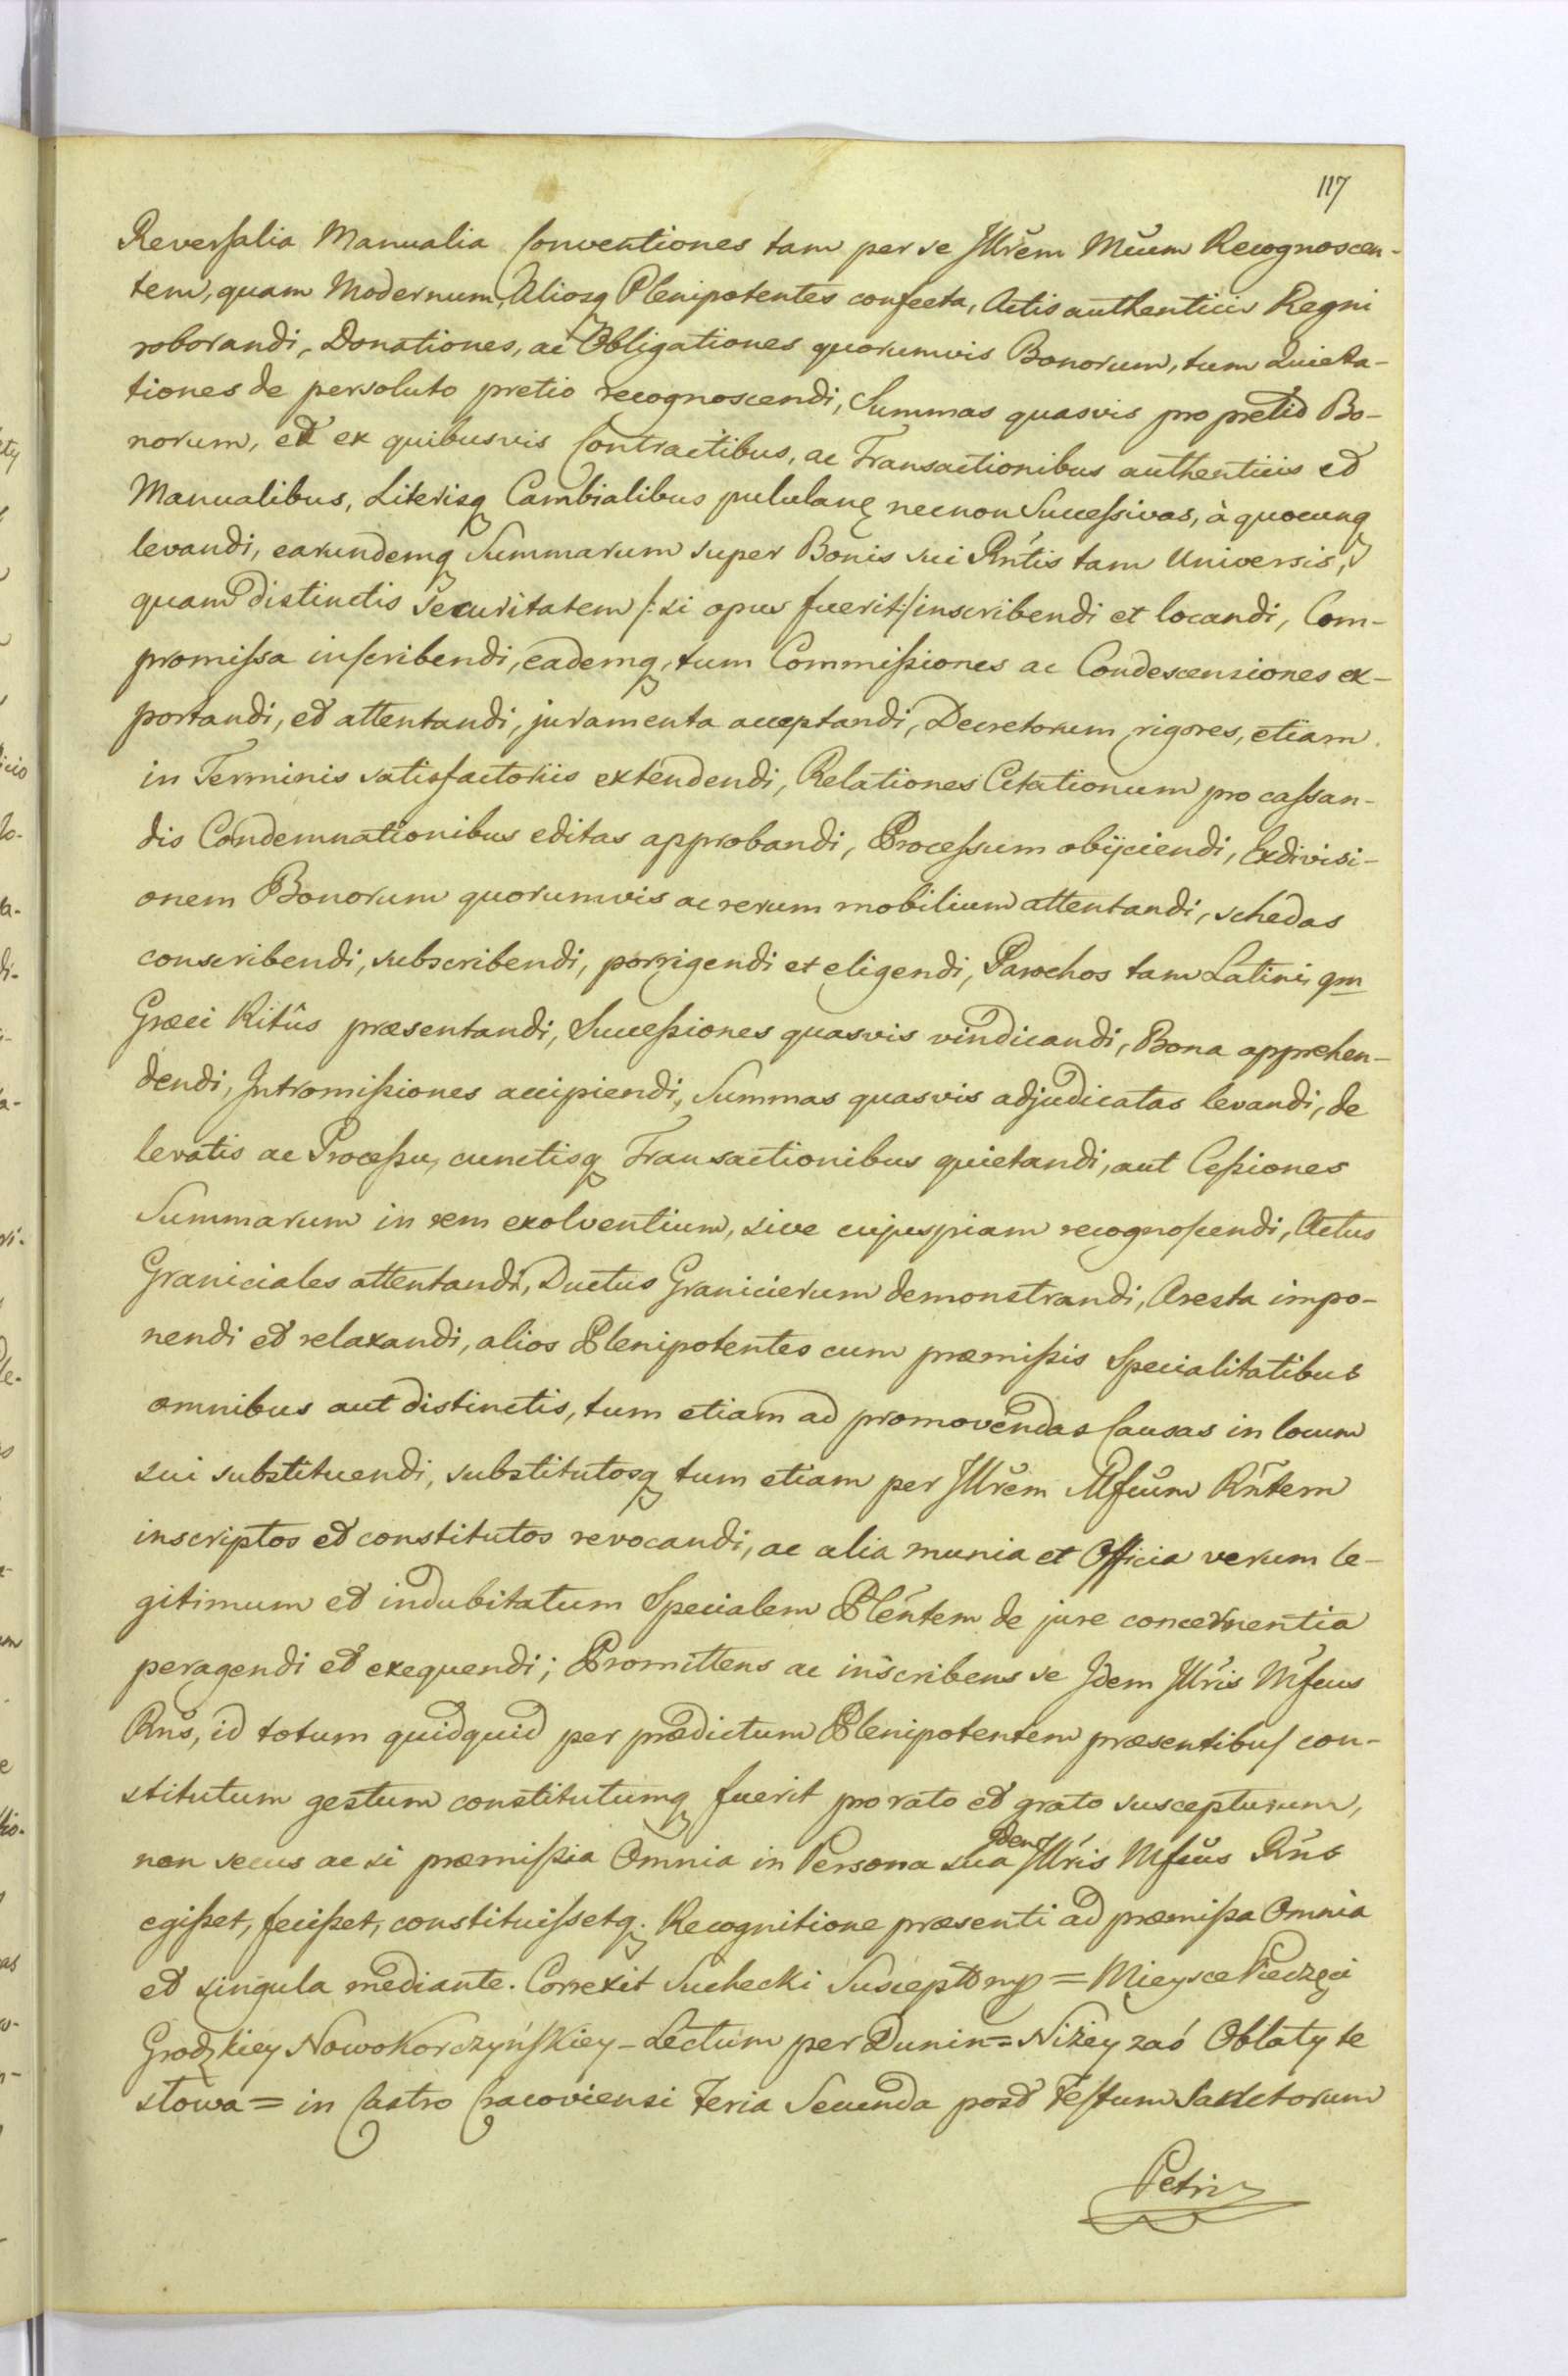 117
Reversalia Manualia Conventiones tam per se Illřem Mcum Recognoscen-
tem, quam Modernum, Aliosq Plenipotentes confecta, Actis authenticis Regni
roborandi, Donationes, ac Obligationes quorumvis Bonorum, tum Quieta-
tiones de persoluto pretio recognoscendi, Summas quasvis pro pretio Bo-
norum, et ex quibusvis Contractibus, ac Transactionibus authenticis et
Manualibus, Literisq Cambialibus pululanę necnon Successivas, à quocunq
levandi, earundemq Summarum super Bonis sui Rńtis tam Universis,
quam distinctis Securitatem /: si opus fuerit :/ inscribendi et locandi, Com-
promissa inscribendi, eademq, tum Commissiones ac Condescensiones ex-
portandi, et attentandi, juramenta acceptandi, Decretorum rigores, etiam
in Terminis satisfactoriis extendendi, Relationes Citationum pro cassan-
dis Condemnationibus editas approbandi, Processum obijciendi, Exdivisi-
onem Bonorum quorumvis ac rerum mobilium attentandi, schedas
conscribendi, subscribendi, porrigendi et eligendi, Parochos tam Latini qm
Græci Ritûs præsentandi, Successiones quasvis vindicandi, Bona apprehen-
dendi, Intromissiones accipiendi, Summas quasvis adjudicatas levandi, de
levatis ac Processu, cunctisq Transactionibus quietandi, aut Cessiones
Summarum in rem exolventium, sive cujuspiam recognoscendi, Actus
Graniciales attentandi, Ductus Granicierum demonstrandi, Aresta impo-
nendi et relaxandi, alios Plenipotentes cum præmissis Specialitatibus
omnibus aut distinctis, tum etiam ad promovendas Causas in locum
sui substituendi, substitutosq tum etiam per Illřem Mfcum Rńtem
inscriptos et constitutos revocandi, ac alia munia et Officia verum le-
gitimum et indubitatum Specialem Pleńtem de jure concernentia
peragendi et exequendi; Promittens ac inscribens se Idem Illris Mfcus
Rńs, id totum quidquid per prædictum Plenipotentem præsentibus con-
stitutum gestum constitutumq fuerit pro rato et grato suscepturum,
non secus ac si præmissia Omnia in Persona sua Idem Illris Mfcus Rńs
egisset, fecisset, constituissetq. Recognitione præsenti ad præmissa Omnia
et singula mediante. Correxit Suchecki Susceptor mp = Mieysce Pieczęci
Grodzkiey NowoKorczyńskiey – Lectum per Dunin = Niżey zaś Oblaty te
słowa = in Castro Cracoviensi Feria Secunda post Festum Sanctorum
Petri